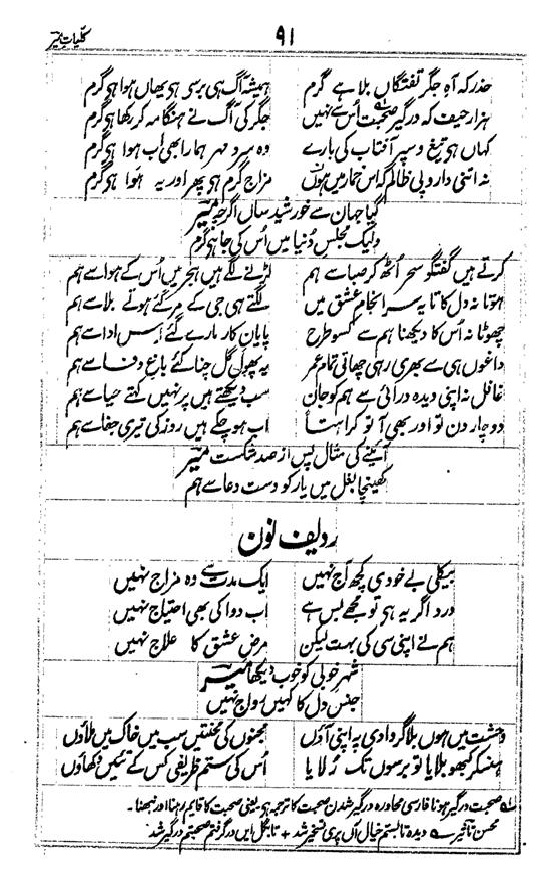 کلیاتِ میر
۹۱
حذر کہ آہِ جگر تفتگاں بلا ہے گرم ہمیشہ آگ ہی برسے ہو یھاں ہوا ہو گرم
ہزار حیف کہ درگیر صحبت اُس سے نہیں جگر کی آگ نے ہنگامہ کر رکھا ہو گرم
کہاں ہو تیغ و سپر آفتاب کی بارے وہ سرد مہر ہمارا بھی اب ہوا ہو گرم
نہ اتنی دارو پی ظالم کہ اس خمار میں ہوں مزاج گرم ہو پھر اور یہ ہوا ہو گرم
گیا جہان سے خورشید ساں اگرچہ میر
ولیک مجلسِ دُنیا میں اُس کی جا ہو گرم
کرتے ہیں گفتگو سحر اُٹھ کر صبا سے ہم لڑنے لگے ہیں ہجر میں اُس کے ہوا سے ہم
ہوتا نہ دل کا تا یہ سرانجام عشق میں لگتے ہی جی کے مر گئے ہوتے بلا سے ہم
چھوٹا نہ اُس کا دیکھنا ہم سے کسو طرح پایانِ کار مارے گئے اس ادا سے ہم
داغوں ہی سے بھری رہی چھاتی تمام عمر یہ پھول گل چنا کئے باغِ وفا سے ہم
غافل نہ اپنی دیدہ درائی سے ہم کو جان سب دیکھتے ہیں پر نہیں کہتے حیا سے ہم
دو چار دن تو اور بھی آ تو کراہتاً اب ہو چکے ہیں روز کی تیری جفا سے ہم
آئینے کی مثال پس از صد شکست میر
کھینچا بغل میں یار کو دستِ دعا سے ہم
ردیف نون
بیکلی بے خودی کچھ آج نہیں ایک مدت سے وہ مزاج نہیں
درد اگر یہ ہی تو مجھے بس ہے اب دوا کی بھی احتیاج نہیں
ہم نے اپنی سی کی بہت لیکن مرضِ عشق کا علاج نہیں
شہرِ خوبی کو خوب دیکھا میر
جنسِ دل کا کہیں رواج نہیں
وحشت میں ہوں بلا گر وادی پہ اپنی آؤں مجنوں کی محنتیں سب میں خاک میں ملاؤں
ہنسکر کبھو بلایا تو برسوں تک رُلایا اُس کی ستم ظریفی کس کے تئیں دکھاؤں
صحبت درگیر ہونا فارسی محاورہ درگیر شدن صحبت کا ترجمہ ہو یعنی صحبت کا قایم رہنا اور نبھنا ۔
محسن تاثیر ؎ دیدہ تا بستم خیال آں پری تسخیر شد + تا بگل ایں در گرفتم صحبتم درگیر شد